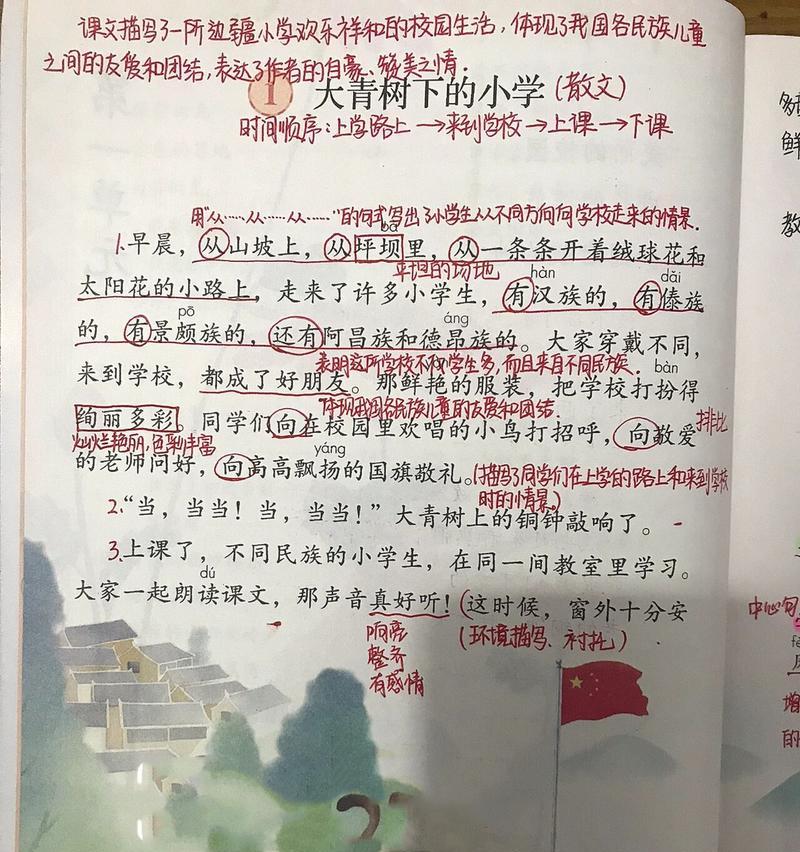 课文描写了一所边疆小学欢乐祥和的校园生活，体现了我国各民族儿童
之间的友爱和团结，表达了作者的自豪、赞美之情．
1 大青树下的小学（散文）
时间顺序：上学路上→来到学校→上课→下课
用“从……从……从……”的句式写出了小学生从不同方向向学校走来的情景．
bà
1.早晨，从山坡上，从坪坝里，从一条条开着绒球花和
平坦的场地
hàn dǎi
太阳花的小路上，走来了许多小学生，有汉族的，有傣族
pō áng
的，有景颇族的，还有阿昌族和德昂族的。大家穿戴不同，
表明这所学校不仅学生多，而且来自不同民族．
bàn
来到学校，都成了好朋友。那鲜艳的服装，把学校打扮得
体现我国各民族儿童的友爱和团结．
绚丽多彩。同学们向在校园里欢唱的小鸟打招呼，向敬爱
排比
灿烂艳丽，色彩丰富
yáng
的老师问好，向高高飘扬的国旗敬礼。（描写了同学们在上学的路上和来到学校
时的情景。）
2.“当，当当！当，当当！”大青树上的铜钟敲响了。
3.上课了，不同民族的小学生，在同一间教室里学习。
dú
大家一起朗读课文，那声音真好听！（这时候，窗外十分安
响亮
整齐
有感情
（环境描写、衬托）
鲜
教
中心句
增
的